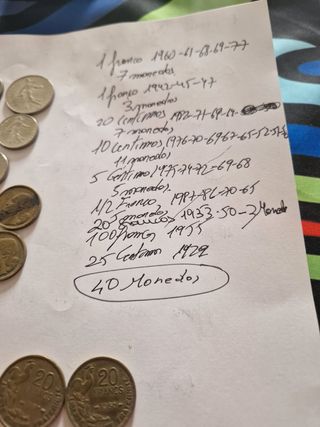 1 franco 1960-61-68-69-77
7 monedas
1 franco 1942-45-47
3 monedas
20 centimos 1982-71-69-14
7 monedas
10 centimos 1976-70-69 67-65-52-51-6
11 monedas
5 Centimos 1975-74-72-69-68
5 monedas
1/2 Franco 1987-86-70-65
20 1953-50-2 Moneda
100 1955
25 Centimos 1929
40 Monedas
20
20